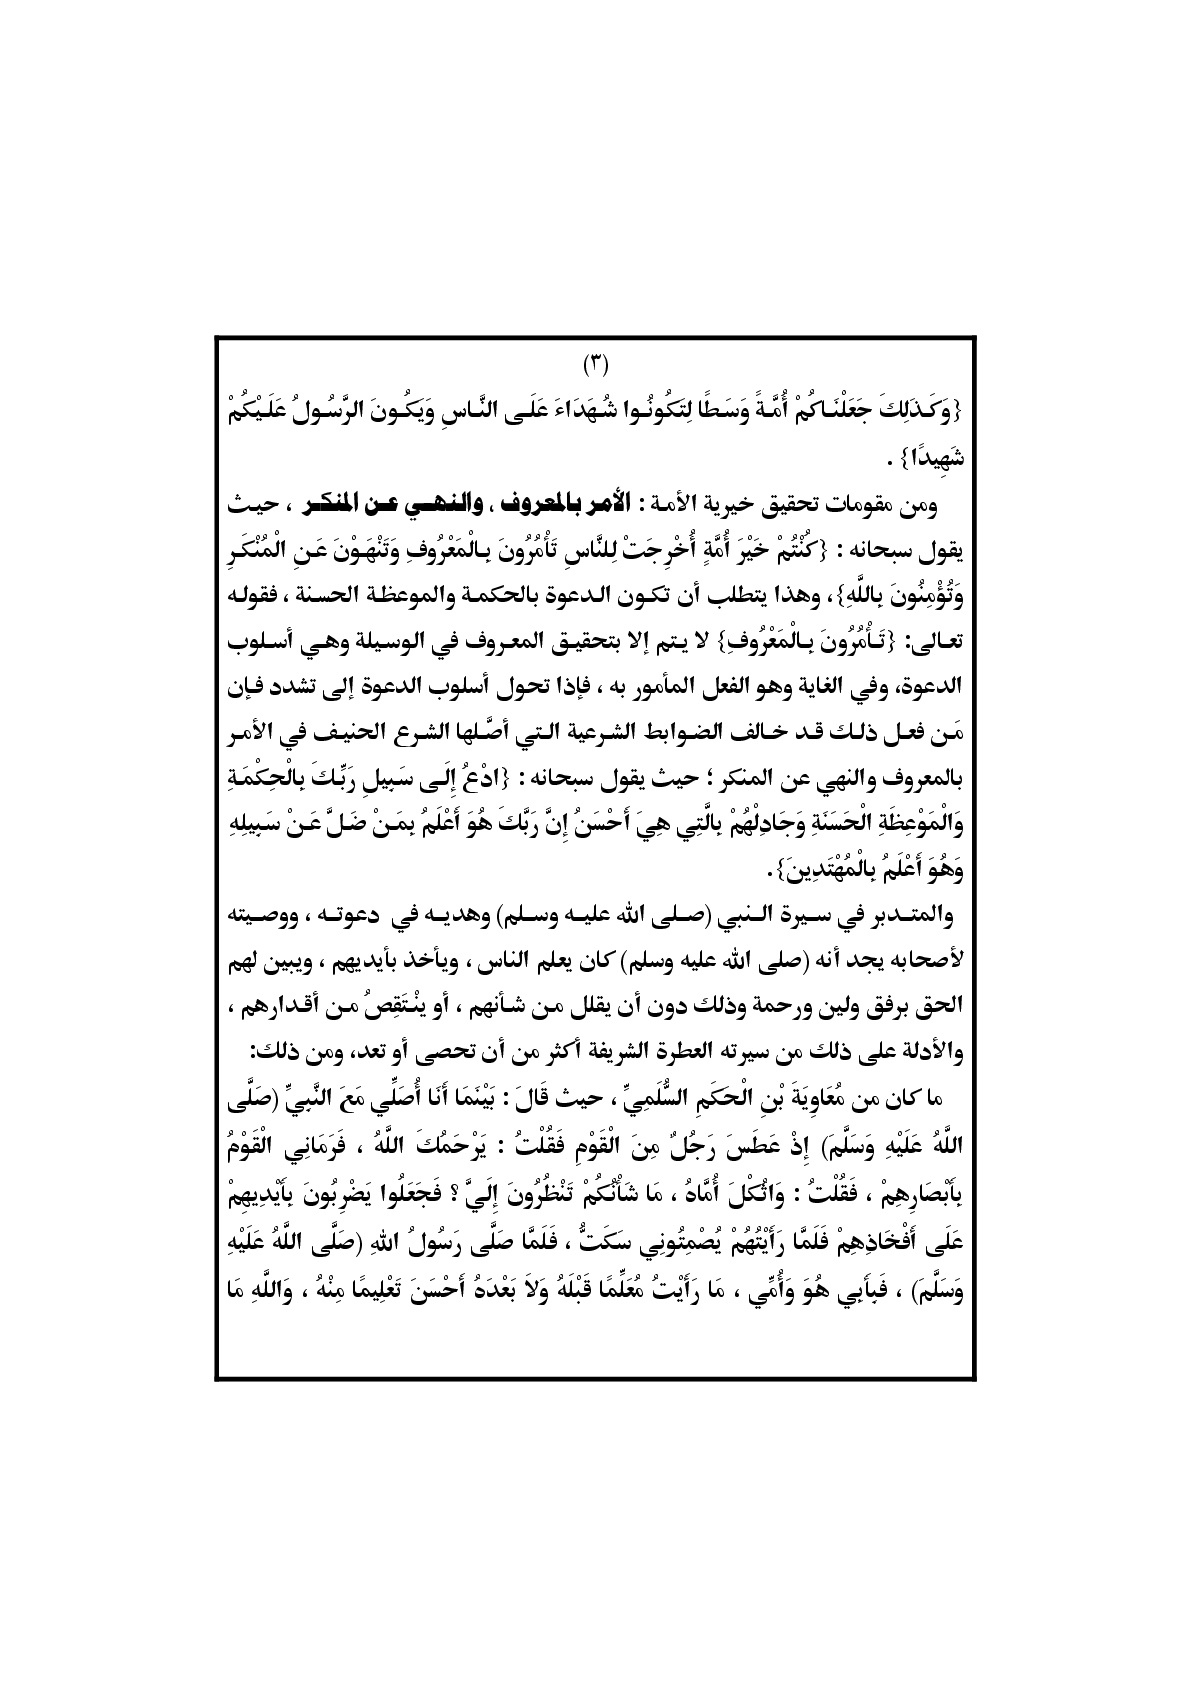 (٣)
{وَكَذَلِكَ جَعَلْنَاكُمْ أُمَّةً وَسَطًا لِتَكُونُوا شُهَدَاءَ عَلَى النَّاسِ وَيَكُونَ الرَّسُولُ عَلَيْكُمْ
شَهِيدًا} .
ومن مقومات تحقيق خيرية الأمة : الأمر بالمعروف ، والنهي عن المنكر ، حيث
يقول سبحانه : {كُنْتُمْ خَيْرَ أُمَّةٍ أُخْرِجَتْ لِلنَّاسِ تَأْمُرُونَ بِالْمَعْرُوفِ وَتَنْهَوْنَ عَنِ الْمُنْكَرِ
وَتُؤْمِنُونَ بِاللَّهِ}، وهذا يتطلب أن تكون الدعوة بالحكمة والموعظة الحسنة ، فقوله
تعالى: {تَأْمُرُونَ بِالْمَعْرُوفِ} لا يتم إلا بتحقيق المعروف في الوسيلة وهي أسلوب
الدعوة، وفي الغاية وهو الفعل المأمور به ، فإذا تحول أسلوب الدعوة إلى تشدد فإن
مَن فعل ذلك قد خالف الضوابط الشرعية التي أصَّلها الشرع الحنيف في الأمر
بالمعروف والنهي عن المنكر ؛ حيث يقول سبحانه : {ادْعُ إِلَى سَبِيلِ رَبِّكَ بِالْحِكْمَةِ
وَالْمَوْعِظَةِ الْحَسَنَةِ وَجَادِلْهُمْ بِالَّتِي هِيَ أَحْسَنُ إِنَّ رَبَّكَ هُوَ أَعْلَمُ بِمَنْ ضَلَّ عَنْ سَبِيلِهِ
وَهُوَ أَعْلَمُ بِالْمُهْتَدِينَ}.
والمتدبر في سيرة النبي (صلى الله عليه وسلم) وهديه في دعوته ، ووصيته
لأصحابه يجد أنه (صلى الله عليه وسلم) كان يعلم الناس ، ويأخذ بأيديهم ، ويبين لهم
الحق برفق ولين ورحمة وذلك دون أن يقلل من شأنهم ، أو ينْتَقِصُ من أقدارهم ،
والأدلة على ذلك من سيرته العطرة الشريفة أكثر من أن تحصى أو تعد، ومن ذلك:
ما كان من مُعَاوِيَةَ بْنِ الْحَكَمِ السُّلَمِيِّ ، حيث قَالَ : بَيْنَمَا أَنَا أُصَلِّي مَعَ النَّبِيِّ (صَلَّى
اللَّهُ عَلَيْهِ وَسَلَّمَ) إِذْ عَطَسَ رَجُلٌ مِنَ الْقَوْمِ فَقُلْتُ : يَرْحَمُكَ اللَّهُ ، فَرَمَانِي الْقَوْمُ
بِأَبْصَارِهِمْ ، فَقُلْتُ : وَاثُكْلَ أُمَّاهُ ، مَا شَأْنُكُمْ تَنْظُرُونَ إِلَيَّ ؟ فَجَعَلُوا يَضْرِبُونَ بِأَيْدِيهِمْ
عَلَى أَفْخَاذِهِمْ فَلَمَّا رَأَيْتُهُمْ يُصْمِتُونِي سَكَتُّ ، فَلَمَّا صَلَّى رَسُولُ اللهِ (صَلَّى اللَّهُ عَلَيْهِ
وَسَلَّمَ) ، فَبِأَبِي هُوَ وَأُمِّي ، مَا رَأَيْتُ مُعَلِّمًا قَبْلَهُ وَلاَ بَعْدَهُ أَحْسَنَ تَعْلِيمًا مِنْهُ ، وَاللَّهِ مَا